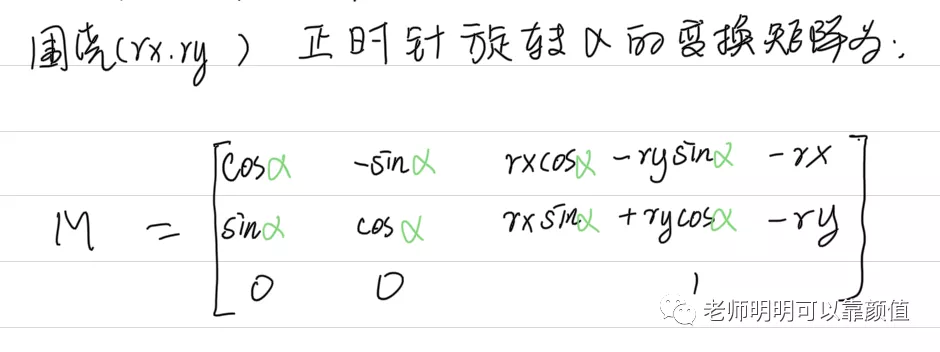 围绕(rx.ry) 正时针旋转α的变换矩阵为:
cosα -sinα rxcosα - rysinα - rx
M = sinα cosα rxsinα + rycosα - ry
0 0 1
老师明明可以靠颜值